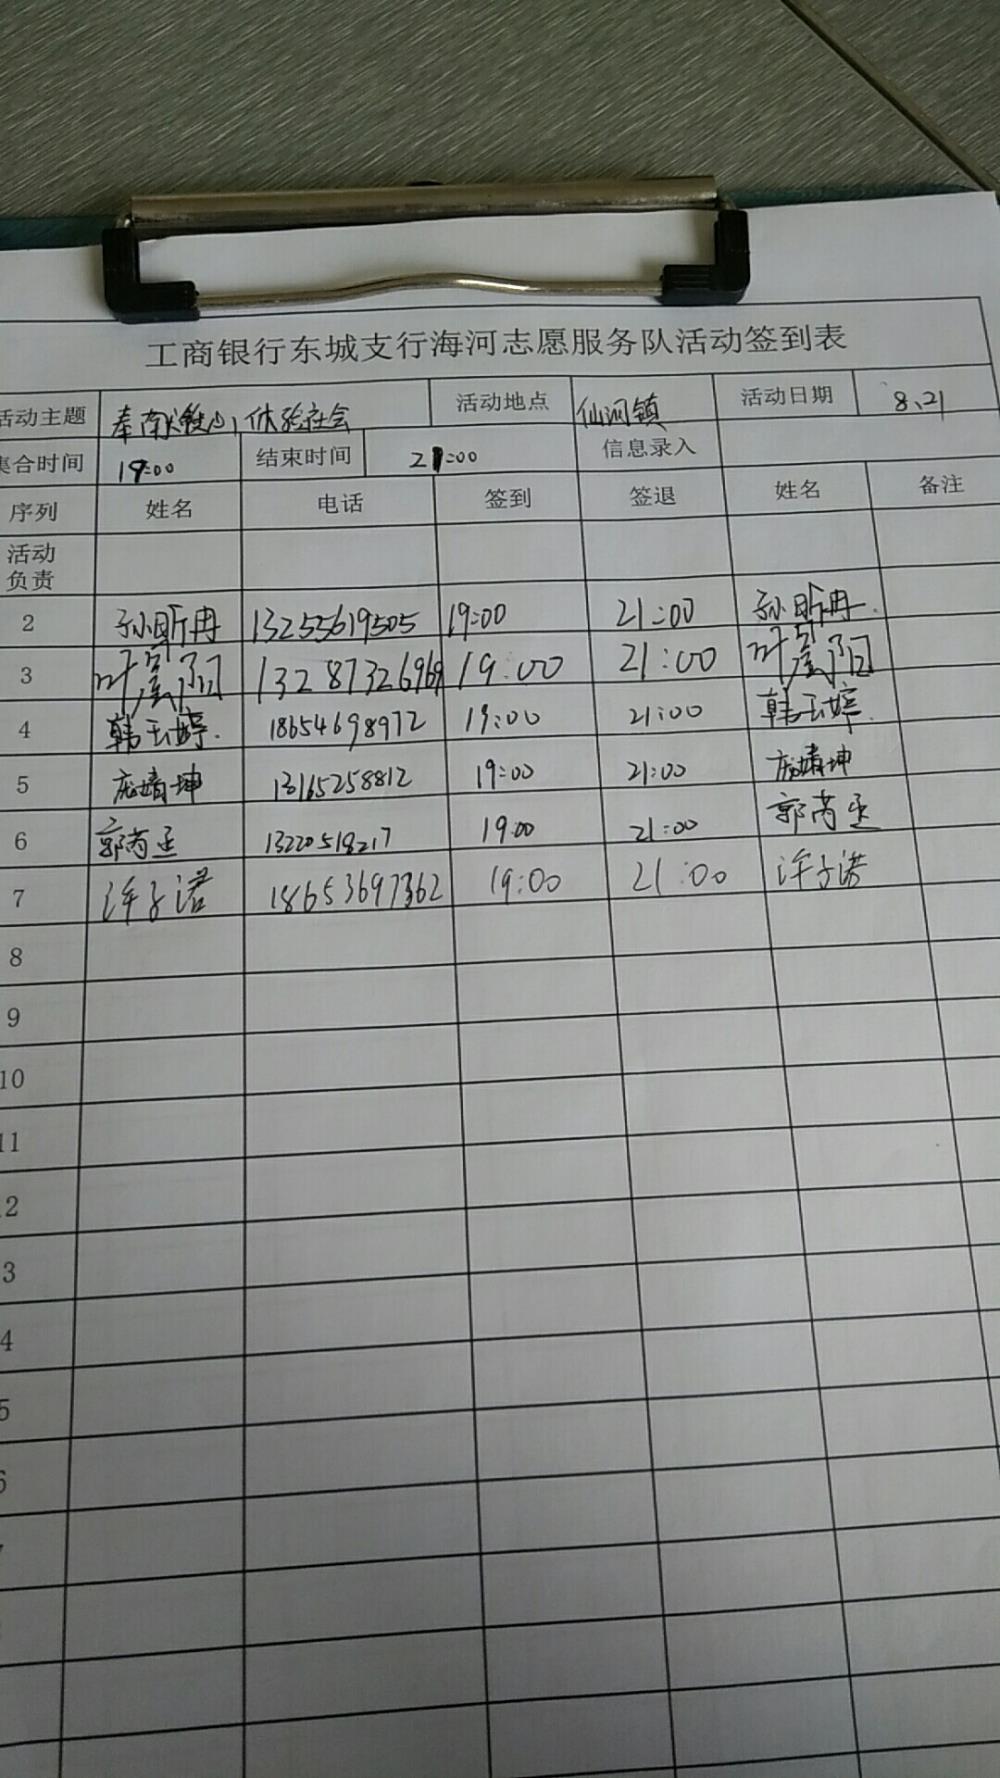 工商银行东城支行海河志愿服务队活动签到表
活动主题 奉献爱心，体验社会 活动地点 仙河镇 活动日期 8、21
集合时间 19:00 结束时间 21:00 信息录入
序列 姓名 电话 签到 签退 姓名 备注
活动
负责
2 孙昕冉 13255619505 19:00 21:00 孙昕冉.
3 13287326969 19:00 21:00
4 韩玉婷. 18654698972 19:00 21:00 韩玉婷.
5 庞靖坤 13165258812 19:00 21:00 庞靖坤
6 郭芮丞 13220518217 19:00 21:00 郭芮丞
7 许子诺 18653697362 19:00 21:00 许子诺
8
9
10
11
12
3
4
5
6